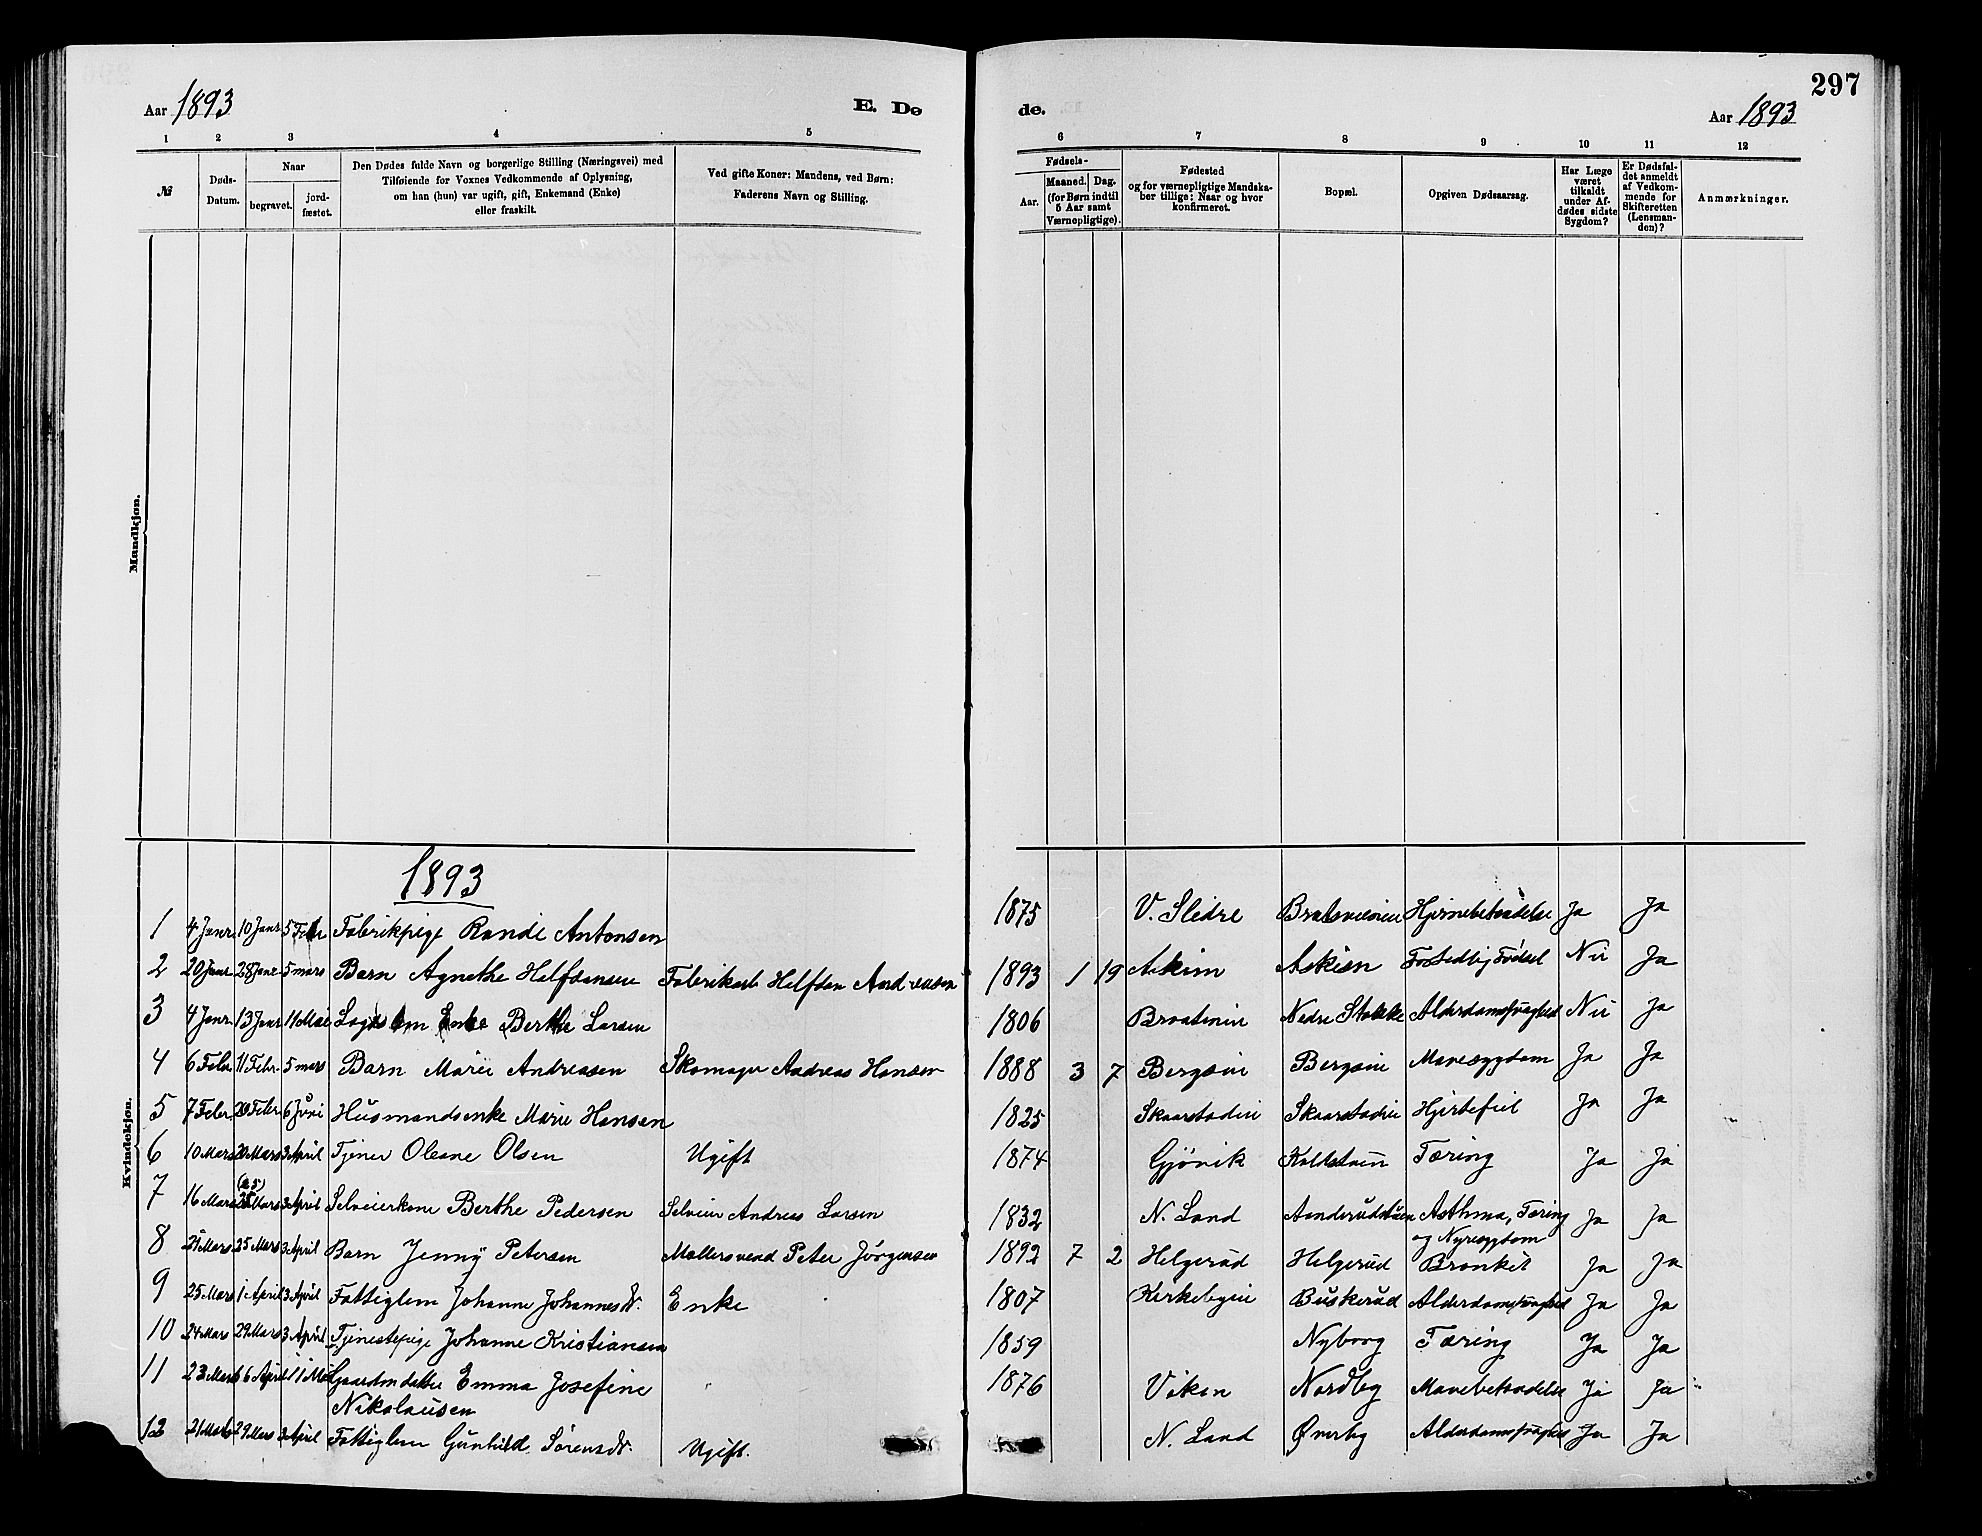 297
Aar 1893
E. Dø
de.
Aar 1893
1 2 3 4 5
6 7 8 9 10 11 12
№
Døds-
Datum.
Naar
begravet.
jord-
fæstet.
Den Dødes fulde Navn og borgerlige Stilling (Næringsvei) med
Tilføiende for Voxnes Vedkommende af Oplysning,
om han (hun) var ugift, gift, Enkemand (Enke)
eller fraskilt.
Ved gifte Koner: Mandens, ved Børn:
Faderens Navn og Stilling.
Fødsels-
Aar.
Maaned. Dag.
(for Børn indtil
5 Aar samt
Værnepligtige).
Fødested
og for værnepligtige Mandska-
ber tillige: Naar og hvor
konfirmeret.
Bopæl.
Opgiven Dødsaarsag.
Har Læge
været
tilkaldt
under Af-
dødes sidste
Sygdom?
Er Dødsfal-
det anmeldt
af Vedkom-
mende for
Skifteretten
(Lensman-
den)?
Anmærkninger.
Mandkjøn.
Kvindekjøn.
1893
1 4 Janr 10 Janr 5 Febr Fabrikpige Randi Antonsen 1875 V. Slidre Bratsveeien Hjernebetændelse Ja Ja
2 20 Janr 28 Janr 5 mars Barn Agnethe Halfdansen Fabrikarb Halfdan Andreasen 1893 1 19 Askim Askim Fodsel Nei Ja
3 4 Janr 13 Janr 11 Mai Enke Berthe Larsen 1806 Braatenin Nedre Stokke Alderdomssvaghed Nei Ja
4 6 Febr 11 Febr 5 mars Barn Marie Andreasen Skomager Andreas Hansen 1888 3 7 Bergsvie Bergsvie Mavesygdom Ja Ja
5 7 Febr 20 Febr 6 Juni Husmandsenke Marie Hansen 1825 Skaarstadeie Skaarstadeie Hjertefeil Ja Ja
6 10 Mars 20 Mars 3 April Tjener Oleane Olsen Ugift 1874 Gjøvik Kalkstuen Tæring Ja Ja
(25)
7 16 Mars Mars 3 April Selveierkone Berthe Pedersen Selveier Andreas Larsen 1832 N. Land Aanderudstuen Asthma, Tæring Ja Ja
og Nyresygdom
8 21 Mars 25 Mars 3 April Barn Jenny Petersen Møllersvend Peter Jørgensen 1892 7 2 Helgerud Helgerud Bronkit Ja Ja
9 25 Mars 1 April 3 April Fattiglem Johanne Johannesdr. Enke 1807 Kirkebyeie Buskerud Alderdomssvaghed Ja Ja
10 24 Mars 29 Mars 3 April Tjenestepige Johanne Kristiansen 1859 Nyborg Tæring Ja Ja
11 23 Mars 6 April 1 Mai Gaardmdatter Emma Josefine 1876 Viken Nordby Mavebetændelse Ja Ja
Nikolausen
12 21 Mars 29 Mars 3 April Fattiglem Gunhild Sörensdr. Ugift. N. Land Øverby Alderdomssvaghed Ja Ja